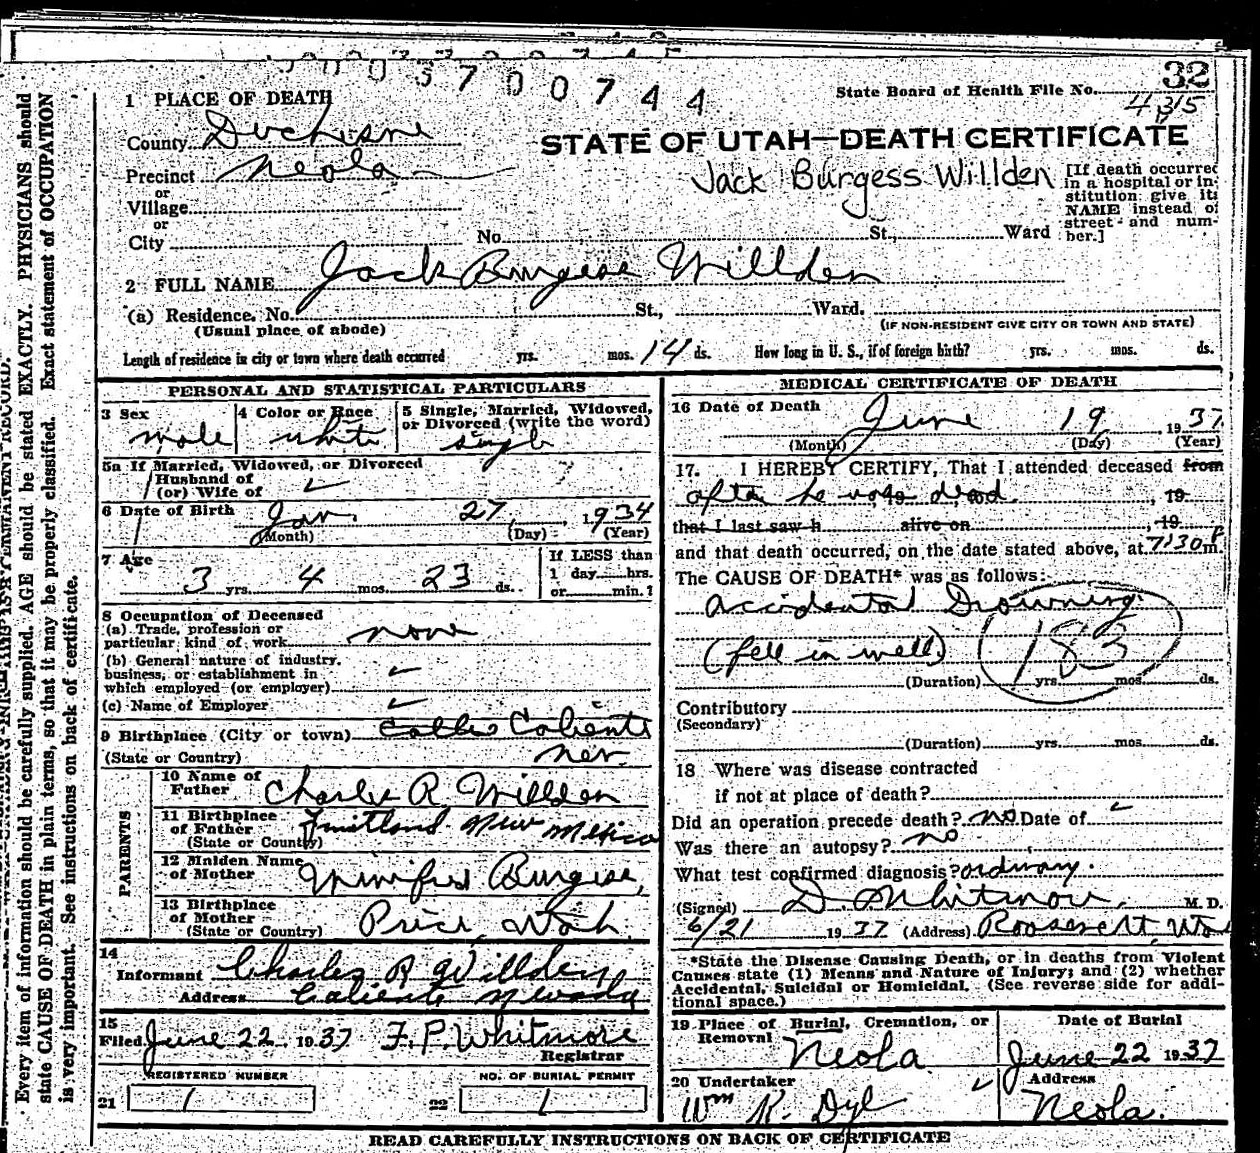 0003700744
32
State Board of Health File No.
4315
1 PLACE OF DEATH
County Duchesne
STATE OF UTAH—DEATH CERTIFICATE
Precinct Neola
Jack Burgess Willden
[If death occurred in a hospital or institution give its NAME instead of street and number.]
or
Village
or
City No. St., Ward
2 FULL NAME Jack Burgess Willden
(a) Residence. No. St., Ward.
(Usual place of abode) (IF NON-RESIDENT GIVE CITY OR TOWN AND STATE)
Length of residence in city or town where death occurred yrs. mos. 14 ds. How long in U. S., if of foreign birth? yrs. mos. ds.
PERSONAL AND STATISTICAL PARTICULARS
3 Sex male
4 Color or Race white
5 Single, Married, Widowed, or Divorced (write the word) single
5a If Married, Widowed, or Divorced
Husband of
(or) Wife of
6 Date of Birth Jan. 27, 1934
(Month) (Day) (Year)
7 Age 3 yrs. 4 mos. 23 ds.
If LESS than
1 day hrs.
or min.?
8 Occupation of Deceased
(a) Trade, profession or
particular kind of work none
(b) General nature of industry,
business, or establishment in
which employed (or employer)
(c) Name of Employer
9 Birthplace (City or town) Caliente
(State or Country) Nev.
PARENTS
10 Name of Father Charles R Willden
11 Birthplace of Father (State or Country) Fruitland New Mexico
12 Maiden Name of Mother Winifred Burgess,
13 Birthplace of Mother (State or Country) Price, Utah
14
Informant Charles R Willden
Address Caliente Nevada
15
Filed June 22 1937 F.P. Whitmore
Registrar
REGISTERED NUMBER NO. OF BURIAL PERMIT
21 1 22 1
MEDICAL CERTIFICATE OF DEATH
16 Date of Death June 19, 1937
(Month) (Day) (Year)
17. I HEREBY CERTIFY, That I attended deceased from
after he was dead. , 19
that I last saw h alive on , 19
and that death occurred, on the date stated above, at 7:30 P m.
The CAUSE OF DEATH* was as follows:
accidental Drowning
(fell in well) 183
(Duration) yrs. mos. ds.
Contributory
(Secondary)
(Duration) yrs. mos. ds.
18 Where was disease contracted
if not at place of death?
Did an operation precede death? no Date of
Was there an autopsy? no
What test confirmed diagnosis? ordinary.
(Signed) D. Whitmore, M. D.
6/21 1937 (Address) Roosevelt, Uta
*State the Disease Causing Death, or in deaths from Violent
Causes state (1) Means and Nature of Injury; and (2) whether
Accidental, Suicidal or Homicidal. (See reverse side for addi-
tional space.)
19 Place of Burial, Cremation, or Removal Neola
Date of Burial
June 22 1937
20 Undertaker Wm R. Dye
Address
Neola.
READ CAREFULLY INSTRUCTIONS ON BACK OF CERTIFICATE
Every item of information should be carefully supplied. AGE should be stated EXACTLY. PHYSICIANS should
state CAUSE OF DEATH in plain terms, so that it may be properly classified. Exact statement of OCCUPATION
is very important. See instructions on back of certificate.